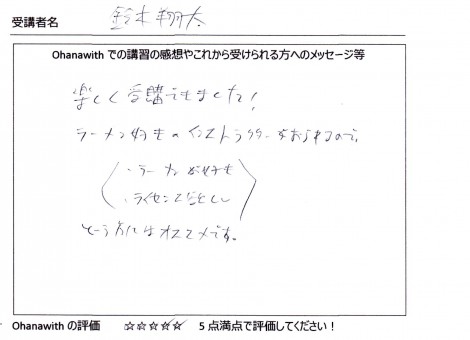 受講者名 鈴木翔太
Ohanawith での講習の感想やこれから受けられる方へのメッセージ等
楽しく受講できました!
ラーメン好きのインストラクターもおられるので、
・ラーメンが好き
・ライセンスて
という方にはオススメです。
Ohanawith の評価 ☆☆☆☆☆ 5 点満点で評価してください!